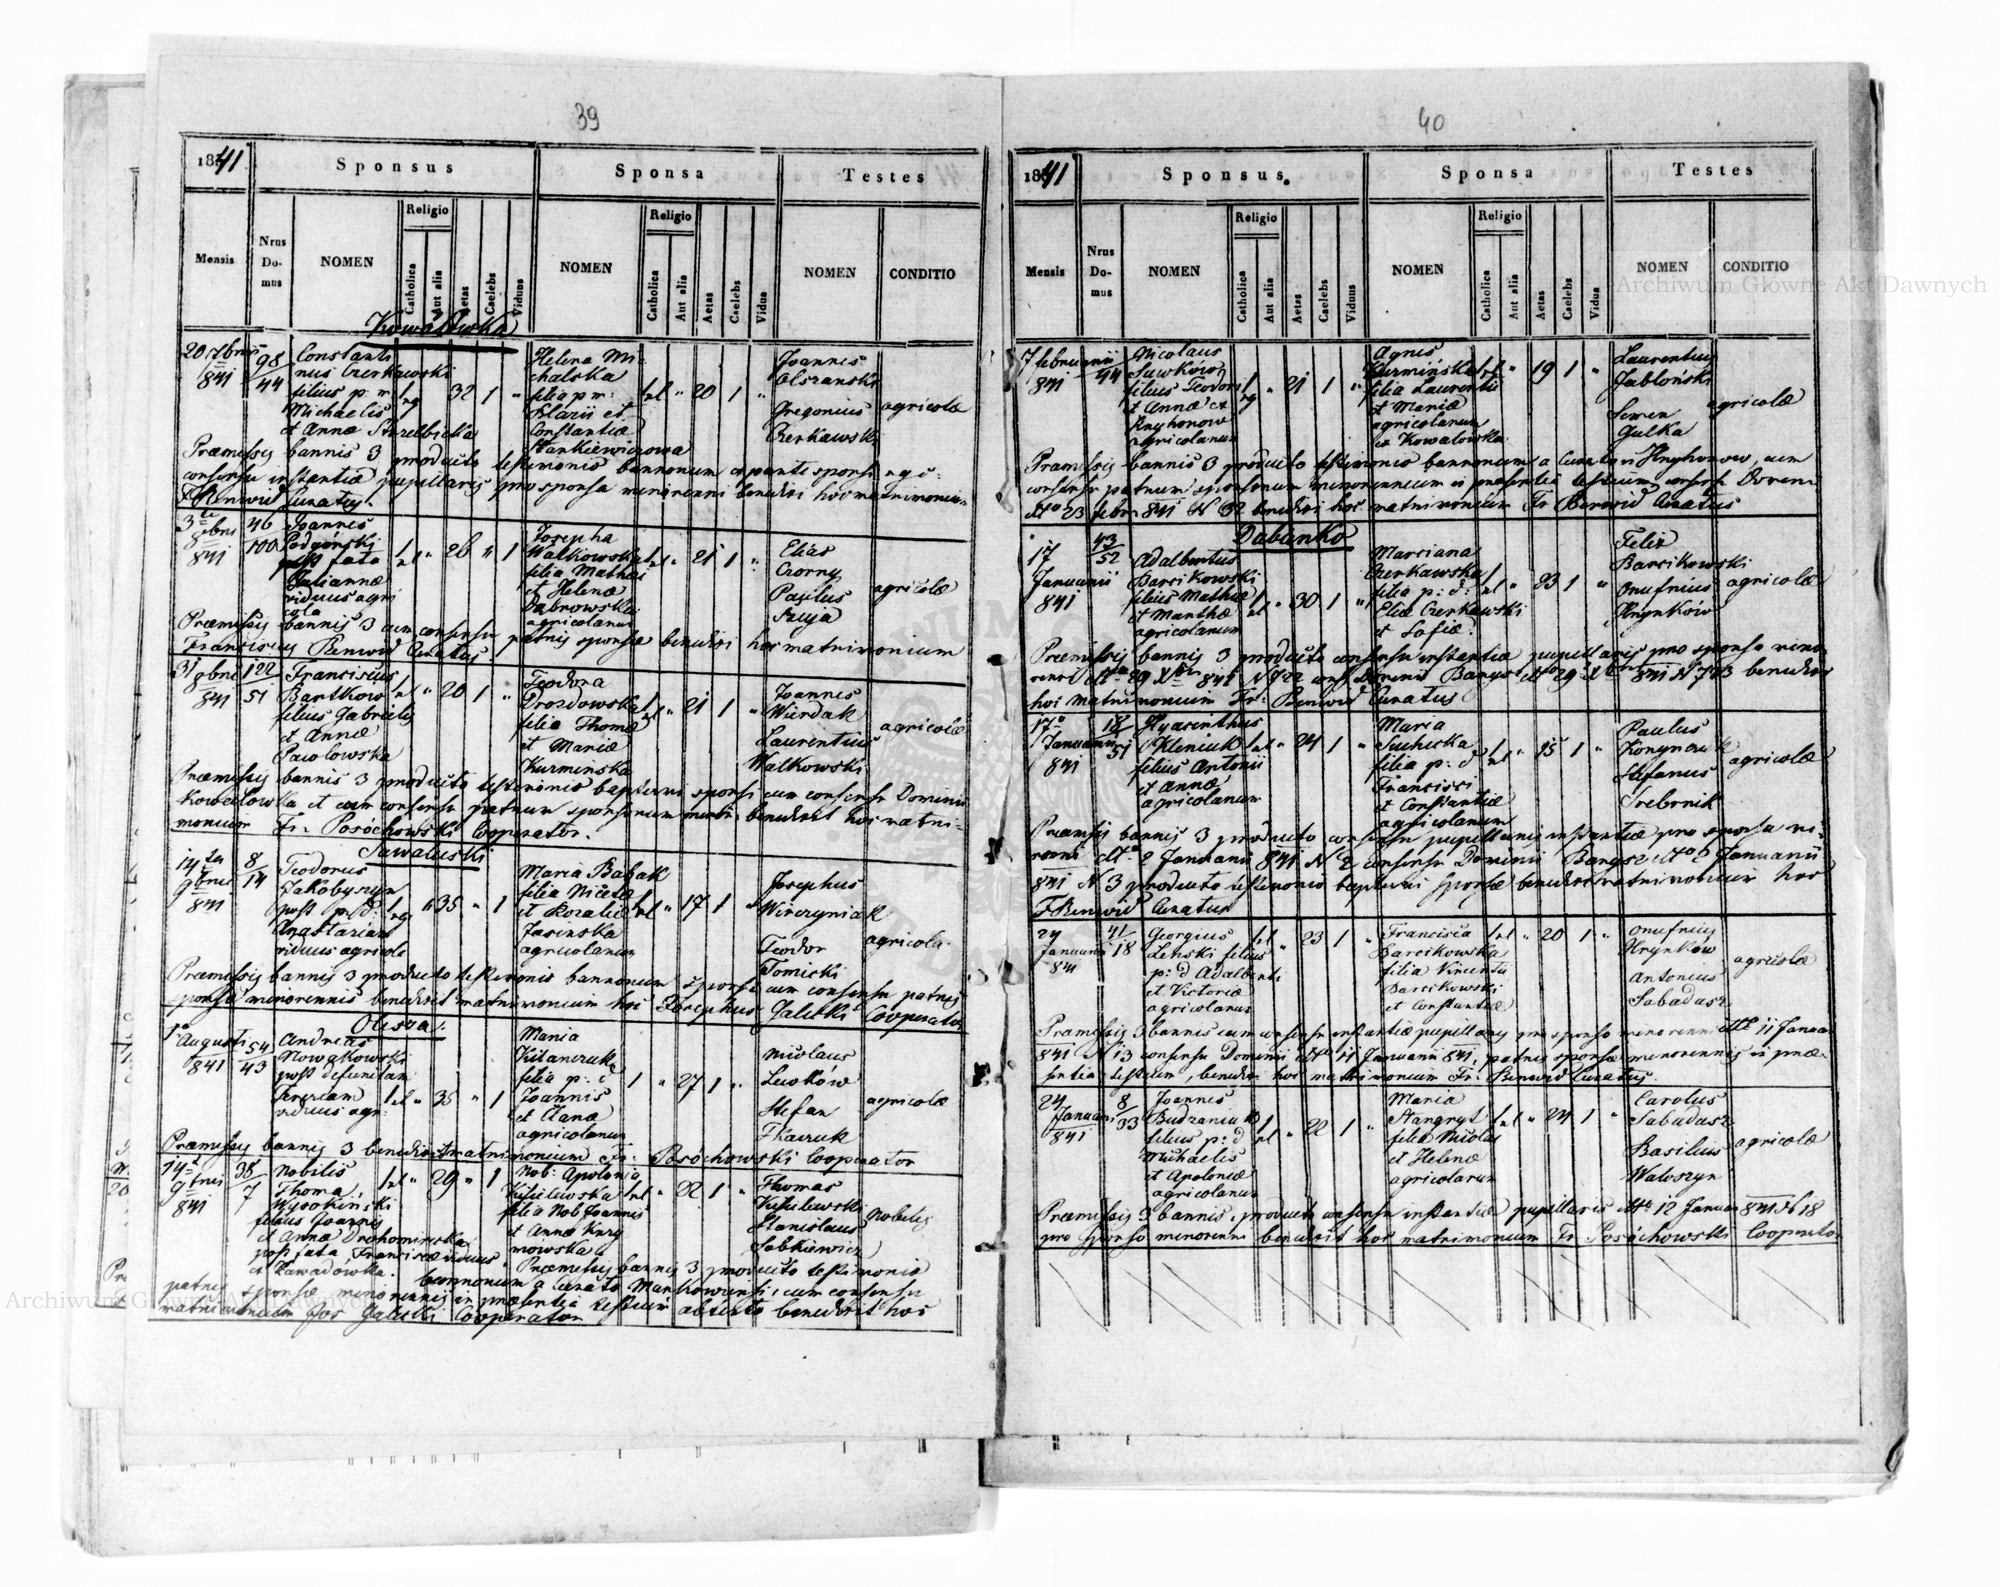 39
1841
Sponsus
Sponsa
Testes
Mensis
Nrus Do- mus
NOMEN
Religio
Catholica
Aut alia
Aetas
Caelebs
Viduus
NOMEN
Religio
Catholica
Aut alia
Aetas
Caelebs
Vidua
NOMEN
CONDITIO
Kowalówka
20 7bris 841
98 44
Constanti
nus Czerkawski
filius p. m.
Michaelis
et Annæ Strzelbicka
32 1
Helena Mi-
chalska
filia p m:
Hilarii et
Constantiæ
Stankiewiczowa
20 1
Joannes
Olszanski
Gregorius
Czerkawski
agricolæ
Præmissis bannis 3 producto testimonio bannorum ex parte sponsi
consensu instantiæ pupillaris pro sponsa minorenni benedixi hoc matrimonium
Fr Benwid Curatus.
8bris 841
46 100
Joannes
Podgórski
post fata
Juliannæ
viduus agri
cola
26 " 1
Josepha
Walkowska
filia Mathei
et Helenæ
Dąbrowska
agricolarum
21 1
Elias
Czorny
Pasilus
Szyja
agricolæ
Præmissis bannis 3 cum consensu patris sponsæ benedixi hoc matrimonium
Franciscus Benwid Curatus.
31 8bris 841
122 51
Franciscus
Bartkow
filius Gabrielis
et Annæ
Pawlowska
20 1
Teodora
Drozdowska
filia Thomæ
et Mariæ
Kurminska
21 1
Joannes
Wierdak
Laurentius
Walkowski
agricolæ
Præmissis bannis 3 producto testimonio baptismi sponsi cum consensu Dominii
Kowalowka et cum consensu patrum sponsorum benedixit hoc matri-
monium Fr. Posóchowski Cooperator.
Sawaluski
14 9bris 841
8 14
Teodorus
Jakobyszyn
post p: d:
Anastasiam
viduus agricola
35 " 1
Maria Babak
filia Nicetæ
et Rozaliæ
Jasinska
agricolarum
17 1
Josephus
Wierzyniak
Teodor
Tomicki
agricolæ
Præmissis bannis 3 producto testimonio bannorum sponsi cum consensu patris
sponsæ minorennis benedixit matrimonium hoc Josephus Galecki Cooperator
Olesza.
1º Augusti 841
54 43
Andreas
Nowakowski
post defunctam
Teresiam
viduus agr:
35 " 1
Maria
Kitanczuk
filia p: d
Joannis
et Annæ
agricolarum
27 1
Nicolaus
Lewków
Stefan
Tkaczuk
agricolæ
Præmissis bannis 3 benedixit matrimonium Fr. Posochowski Cooperator
14 9bris 841
38 7
Nobilis
Thoma
Wysokinski
filius Joannis
et Annæ Drohomirecka
post fata Franciscæ viduus
et Zawadówka.
29 " 1
Nob: Apolonia
Kisielewska
filia Nob Joannis
et Annæ Krzy
mowska
22 1
Thomas
Kisielewski
Stanislaus
Sabkiewicz
nobiles
Præmissis bannis 3 producto testimonio
bannorum a Curato, cum consensu
patris sponsæ minorennis in præsentia testium benedixit hoc
matrimonium Jos Galecki Cooperator
40
1841
Sponsus
Sponsa
Testes
Mensis
Nrus Do- mus
NOMEN
Religio
Catholica
Aut alia
Aetas
Caelebs
Viduus
NOMEN
Religio
Catholica
Aut alia
Aetas
Caelebs
Vidua
NOMEN
CONDITIO
7 februarii 841
44
Nicolaus
Sawków
filius Teodori
et Annæ ex
Hryhorow
agricolarum
21 1
Agnes
Kurmińska
filia Laurentii
et Mariæ
agricolarum
ex Kowalowka
19 1
Laurentius
Jabłoński
Semen
Gulka
agricolæ
Præmissis bannis 3 producto testimonio bannorum a Curato Hryhorow, cum
consensu patrum sponsorum minorennium in præsentia testium
dto 23 febr 841 N 32 benedixi hoc matrimonium Fr Benwid Curatus
Dubienko
17 Januarii 841
43 52
Adalbertus
Barcikowski
filius Mathiæ
et Marthæ
agricolarum
30 1
Marciana
Czerkawska
filia p: d:
Eliæ Czerkawski
et Sofiæ.
23 1
Felix
Barcikowski
Onufrius
Hrynków
agricolæ
Præmissis bannis 3 producto consensu instantiæ pupillaris pro sponsa mino
hoc matrimonium Fr: Benwid Curatus
17º Januarii 841
18 51
Hyacinthus
Oleniuk
filius Antonii
et Annæ
agricolarum
24 1
Maria
Suchecka
filia p: d
Francisci
et Constantiæ
agricolarum
15 1
Paulus
Konyncuk
Stefanus
Srebrnik
agricolæ
Præmissis bannis 3 producto consensu pupillaris instantiæ pro sponsa mi-
norenni dto 2 Januarii 841 N 2 consensu Dominii dto 2 Januarii
841 N 3 producto testimonio baptismi sponsæ benedixi matrimonium hoc
F Benwid Curatus
24 Januarii 841
41 18
Georgius
Lenski filius
p: d Adalberti
et Victoriæ
agricolarum
23 1
Francisca
Barcikowska
filia Vincentii
Barcikowski
et Constantiæ
20 1
Onufrius
Hrynków
Antonius
Sabadasz
agricolæ
Præmissis 3 bannis cum consensu instantiæ pupillaris pro sponso minorenni dto 11 Januar
841 N 13 consensu Dominii dto 11 Januarii 841, patris sponsæ minorennis in præ-
sentia testium, benedixi hoc matrimonium Fr. Benwid Curatus.
24 Januarii 841
8 33
Joannes
Budzaniuk
filius p: d
Michaelis
et Apoloniæ
agricolarum
22 1
Maria
Stangryt
filia Nicolai
et Helenæ
agricolarum
24 1
Carolus
Sabadasz
Basilius
Wałoszyn
agricolæ
Præmissis 3 bannis, producto consensu instantiæ pupillaris dto 12 Januar 841 N 18
pro sponso minorenni benedixit hoc matrimonium Fr Posóchowski Cooperator
Archiwum Główne Akt Dawnych
Archiwum Główne Akt Dawnych